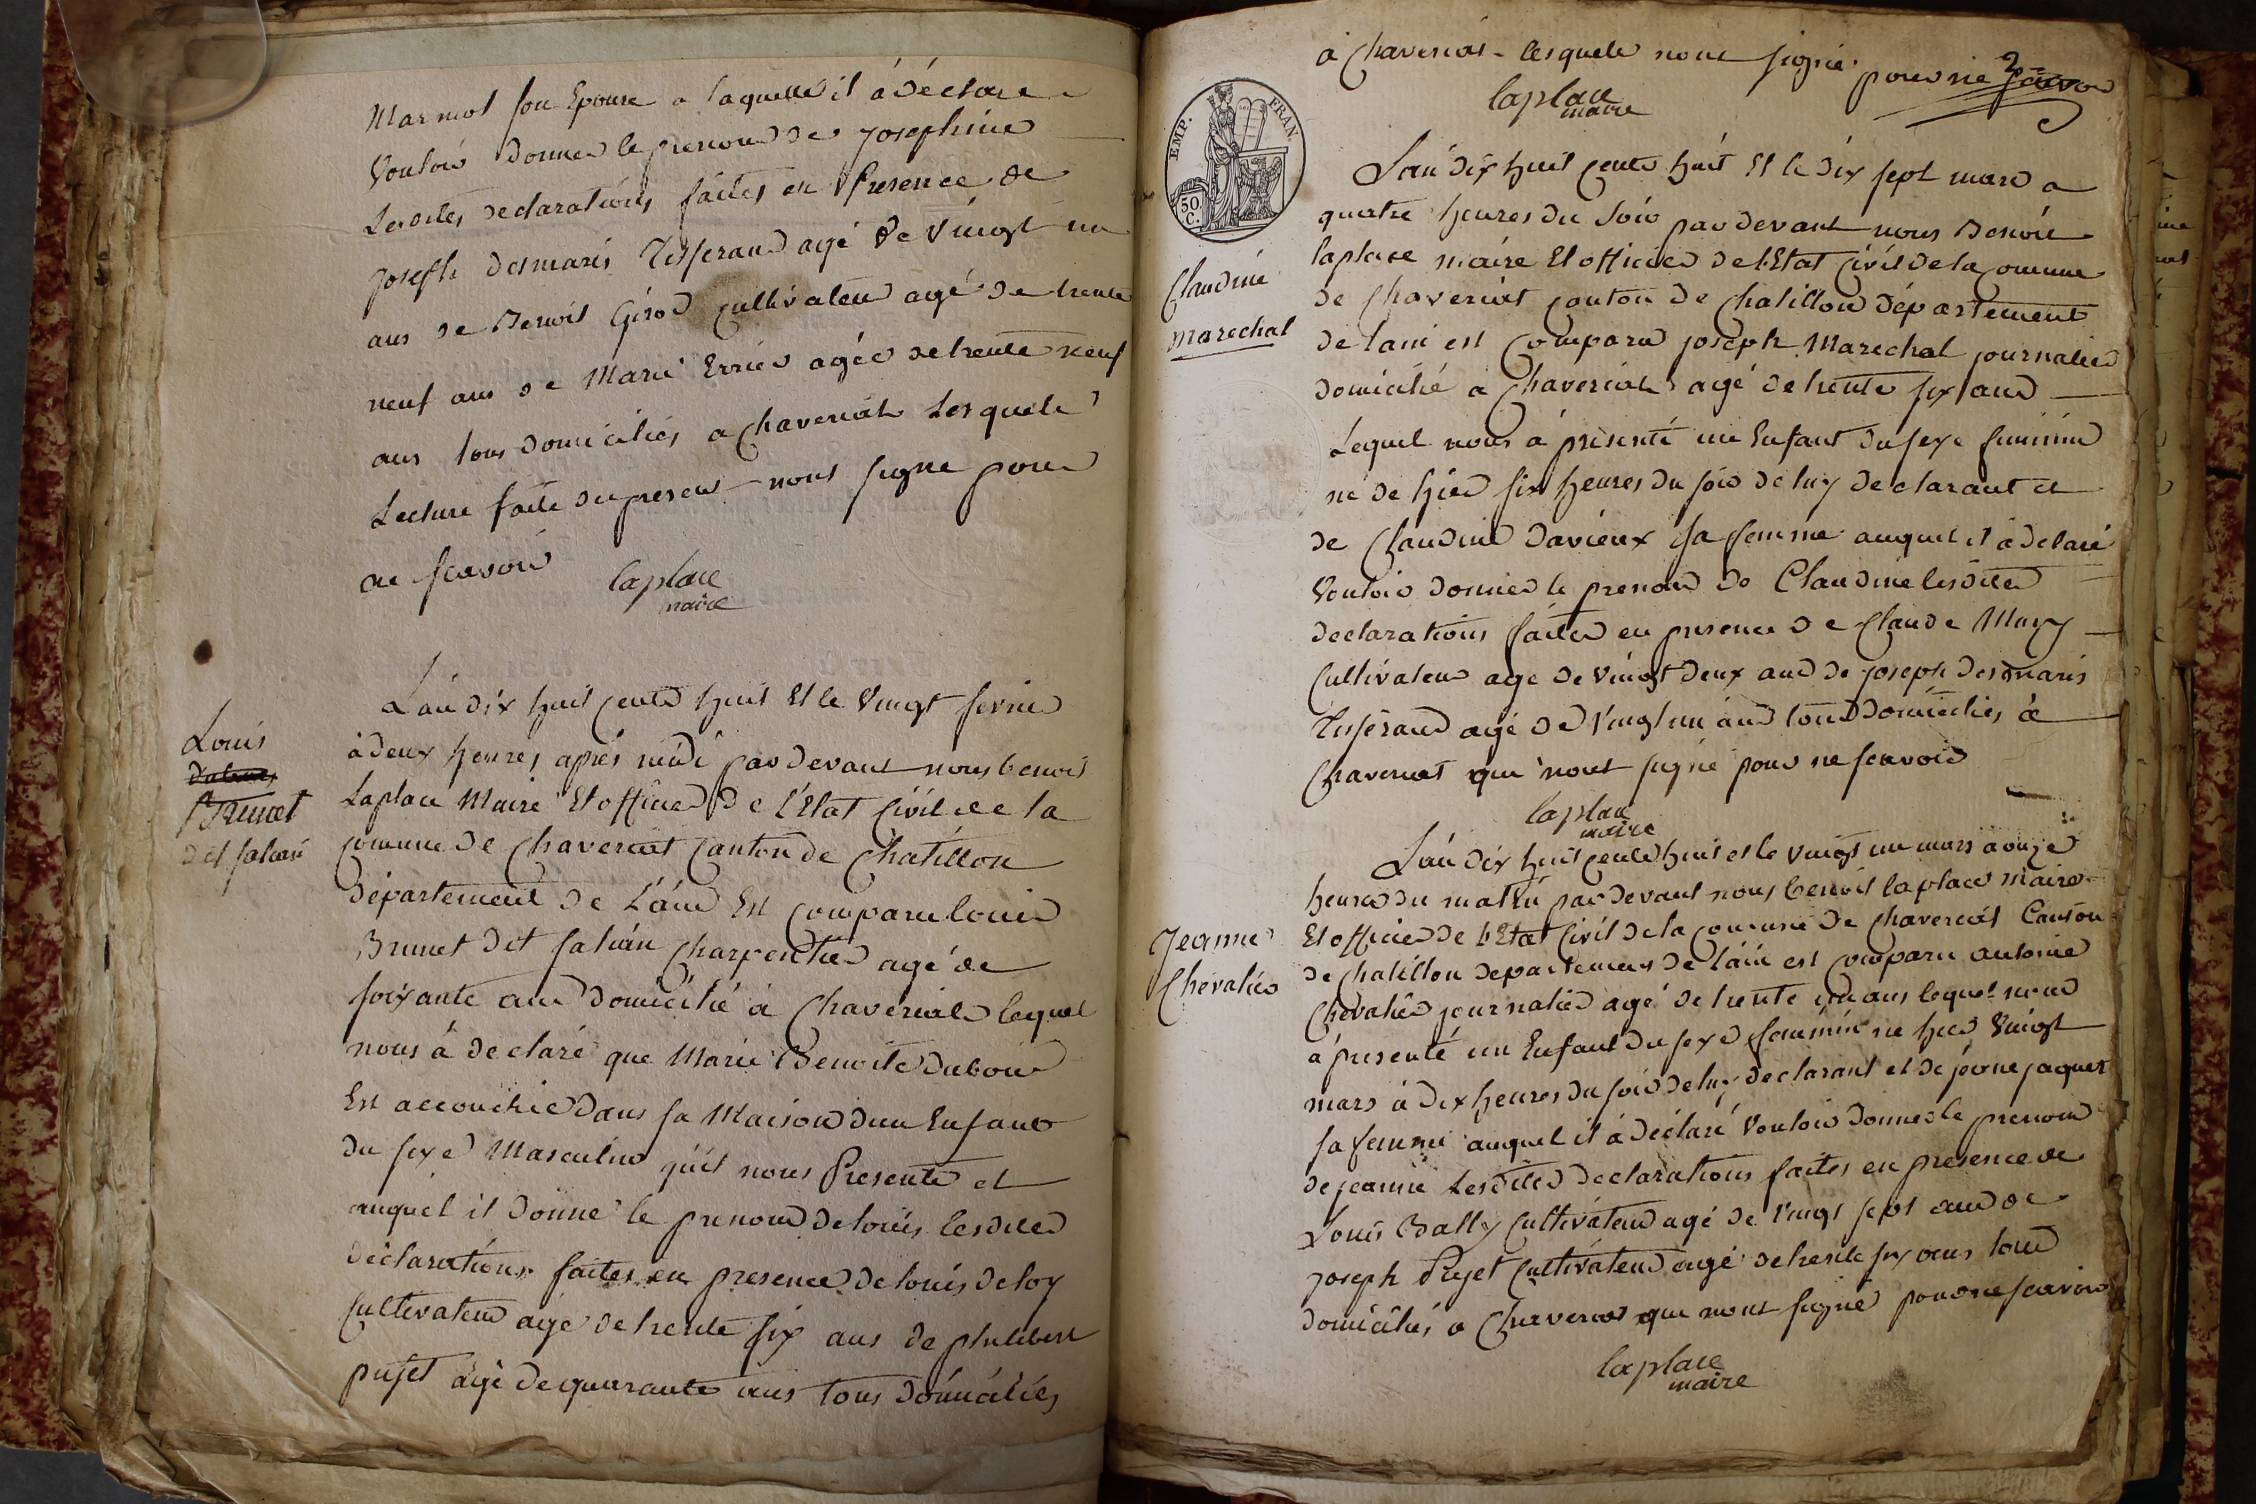 Marmot son Epouse a laquelle il à déclare
Vouloir donner le prenom de josephine
Lesdites declarations faites en Presence de
joseph desmaris Tisserand agé de vingt un
ans de Benoit Girod cultivateur agé de trente
neuf ans de Marie Errier agée de trente neuf
ans tous domiciliés a Chaveriat Lesquels
Lecture faite du present nont signe pour
ne scavoir
laplace
maire
Louis
Brunet
dit
L'an dix huit cents huit Et le Vingt fevrier
à deux heures après midi par devant nous benoit
Laplace Maire Et officier de L'Etat Civil de la
comune de Chaveriat Canton de Chatillon
département de L'ain Est comparu louis
Brunet dit Charpentier agé de
soixante ans domicilié à Chaveriat lequel
nous à declaré que Marie Benoite Dubois
Est accouchée dans sa Maison d'un Enfant
du sexe Masculin qu'il nous Presente et
auquel il donne le prenom de louis lesdites
déclarations faites en presence de louis deloy
Cultivateur agé de trente six ans de philibert
pujet agé de quarante ans tous domiciliés
2
à Chaveriat lesquels nont signé pour ne scavoir
laplace
maire
EMP. FRAN.
50 C.
Claudine
marechal
L'an dix huit cents huit Et le dix sept mars a
quatre heures du soir par devant nous Benoit
laplace maire Et officier de l'Etat Civil de la Comune
de Chaveriat canton de Chatillon département
de lain est comparu joseph Marechal journalier
domicilié a Chaveriat agé de trente six ans
Lequel nous à présenté un Enfant du sexe feminin
né de hier six heures du soir de luy declarant et
de Claudine davieux sa femme auquel il à declaré
Vouloir donner le prenom de Claudine lesdites
declarations faites en presence de Claude Mury
Cultivateur agé de vingt deux ans de joseph desmaris
Tisserand agé de vingt un ans tous domiciliés à
Chaveriat qui nont signé pour ne scavoir
laplace
maire
Jeanne
Chevalier
L'an dix huit cents huit et le vingt un mars à onze
heures du matin par devant nous benoit laplace maire
Et officier de l'Etat Civil de la comune de Chaveriat Canton
de Chatillon departement de l'ain est comparu antoine
Chevalier journalier agé de trente ans lequel nous
à presenté un Enfant du sexe feminin né hier Vingt
mars à dix heures du soir de luy declarant et de jeanne jaquet
sa femme auquel il à déclaré Vouloir donner le prenom
de jeanne Lesdites declarations faites en presence de
Louis Bally Cultivateur agé de Vingt sept ans de
joseph Pujet Cultivateur agé de trente six ans tous
domiciliés a Chaveriat qui nont signé pour ne scavoir
laplace
maire